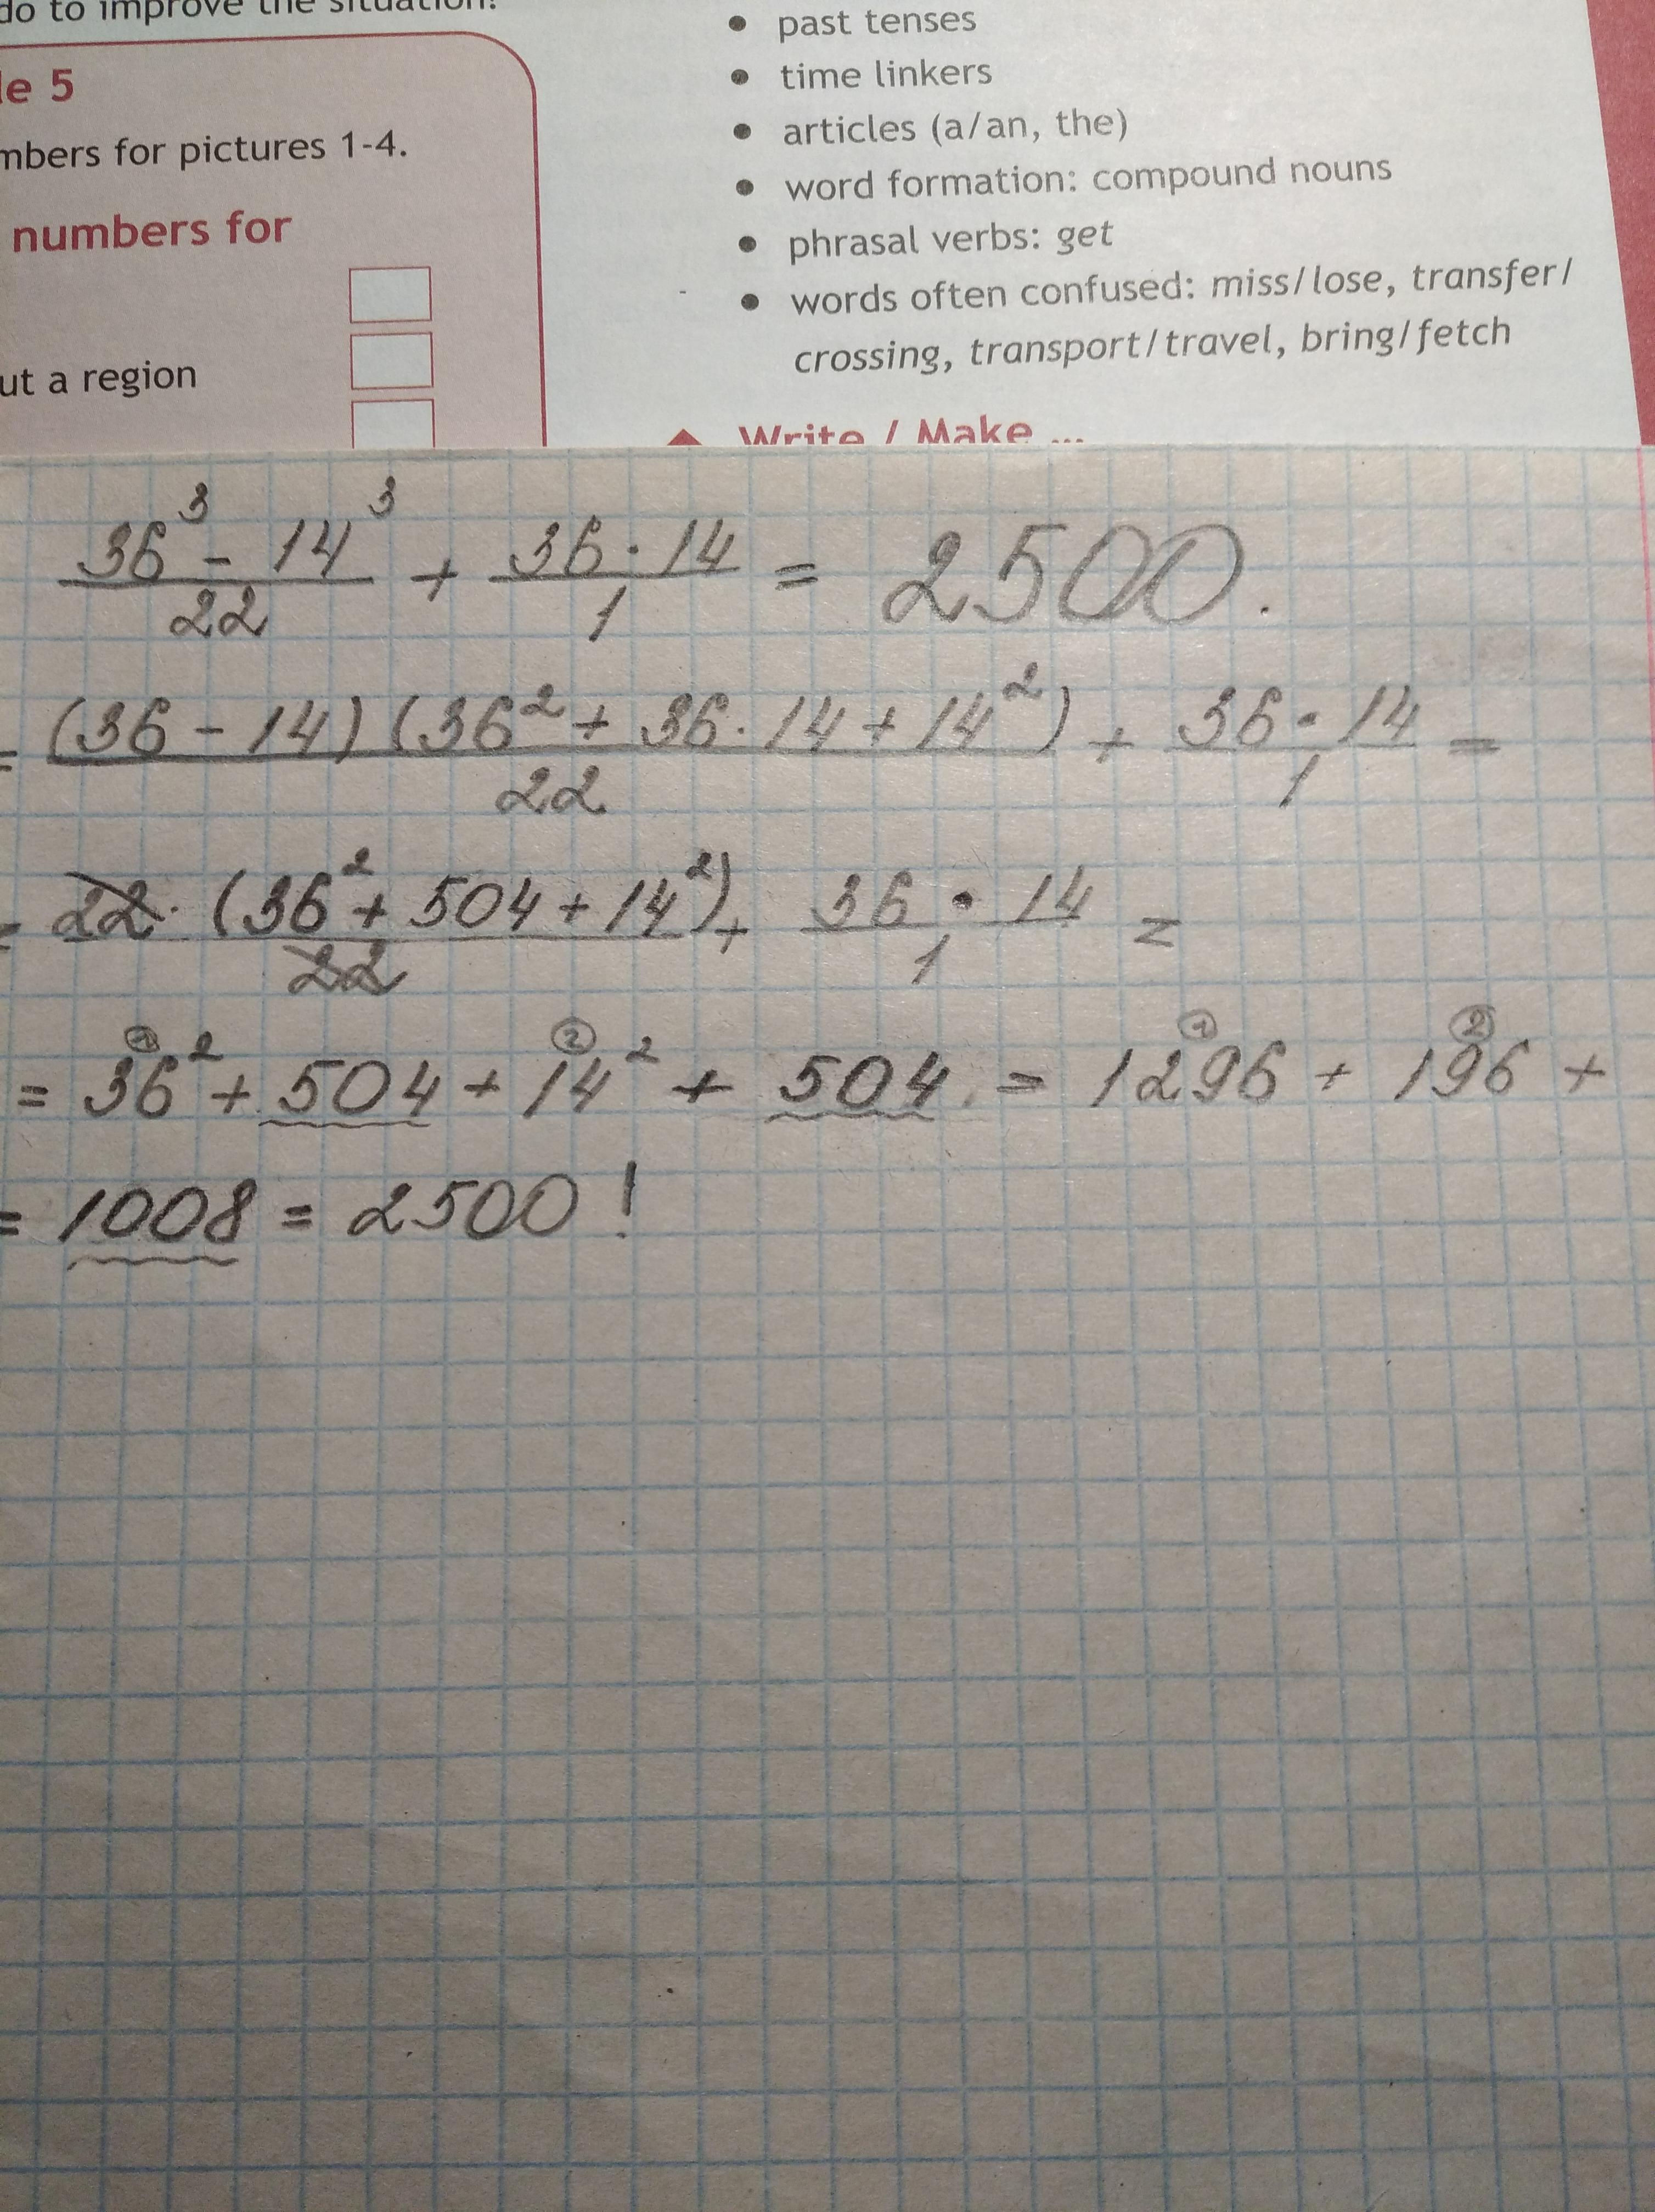 do to improve the situation.
le 5
mbers for pictures 1-4.
numbers for
ut a region
• past tenses
• time linkers
• articles (a/an, the)
• word formation: compound nouns
• phrasal verbs: get
• words often confused: miss/lose, transfer/
crossing, transport/travel, bring/fetch
Write / Make ...
(36³ - 14³)/22 + (36 · 14)/1 = 2500.
= ((36 - 14)(36² + 36 · 14 + 14²))/22 + (36 · 14)/1 =
= (22 · (36² + 504 + 14²))/22 + (36 · 14)/1 =
① ② ① ②
= 36² + 504 + 14² + 504 = 1296 + 196 +
= 1008 = 2500!